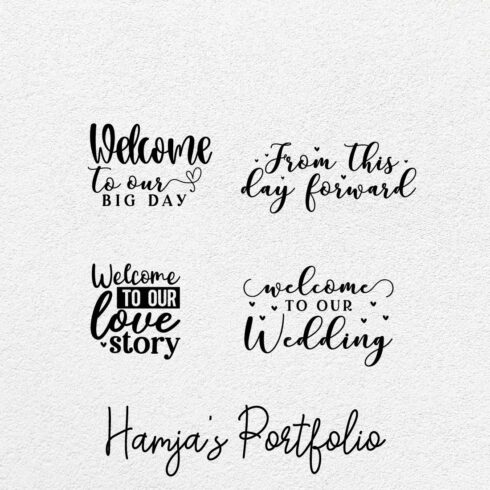 Welcome
to our
BIG DAY
From this
day forward
Welcome
TO OUR
love
story
welcome
TO OUR
Wedding
Hamja's Portfolio